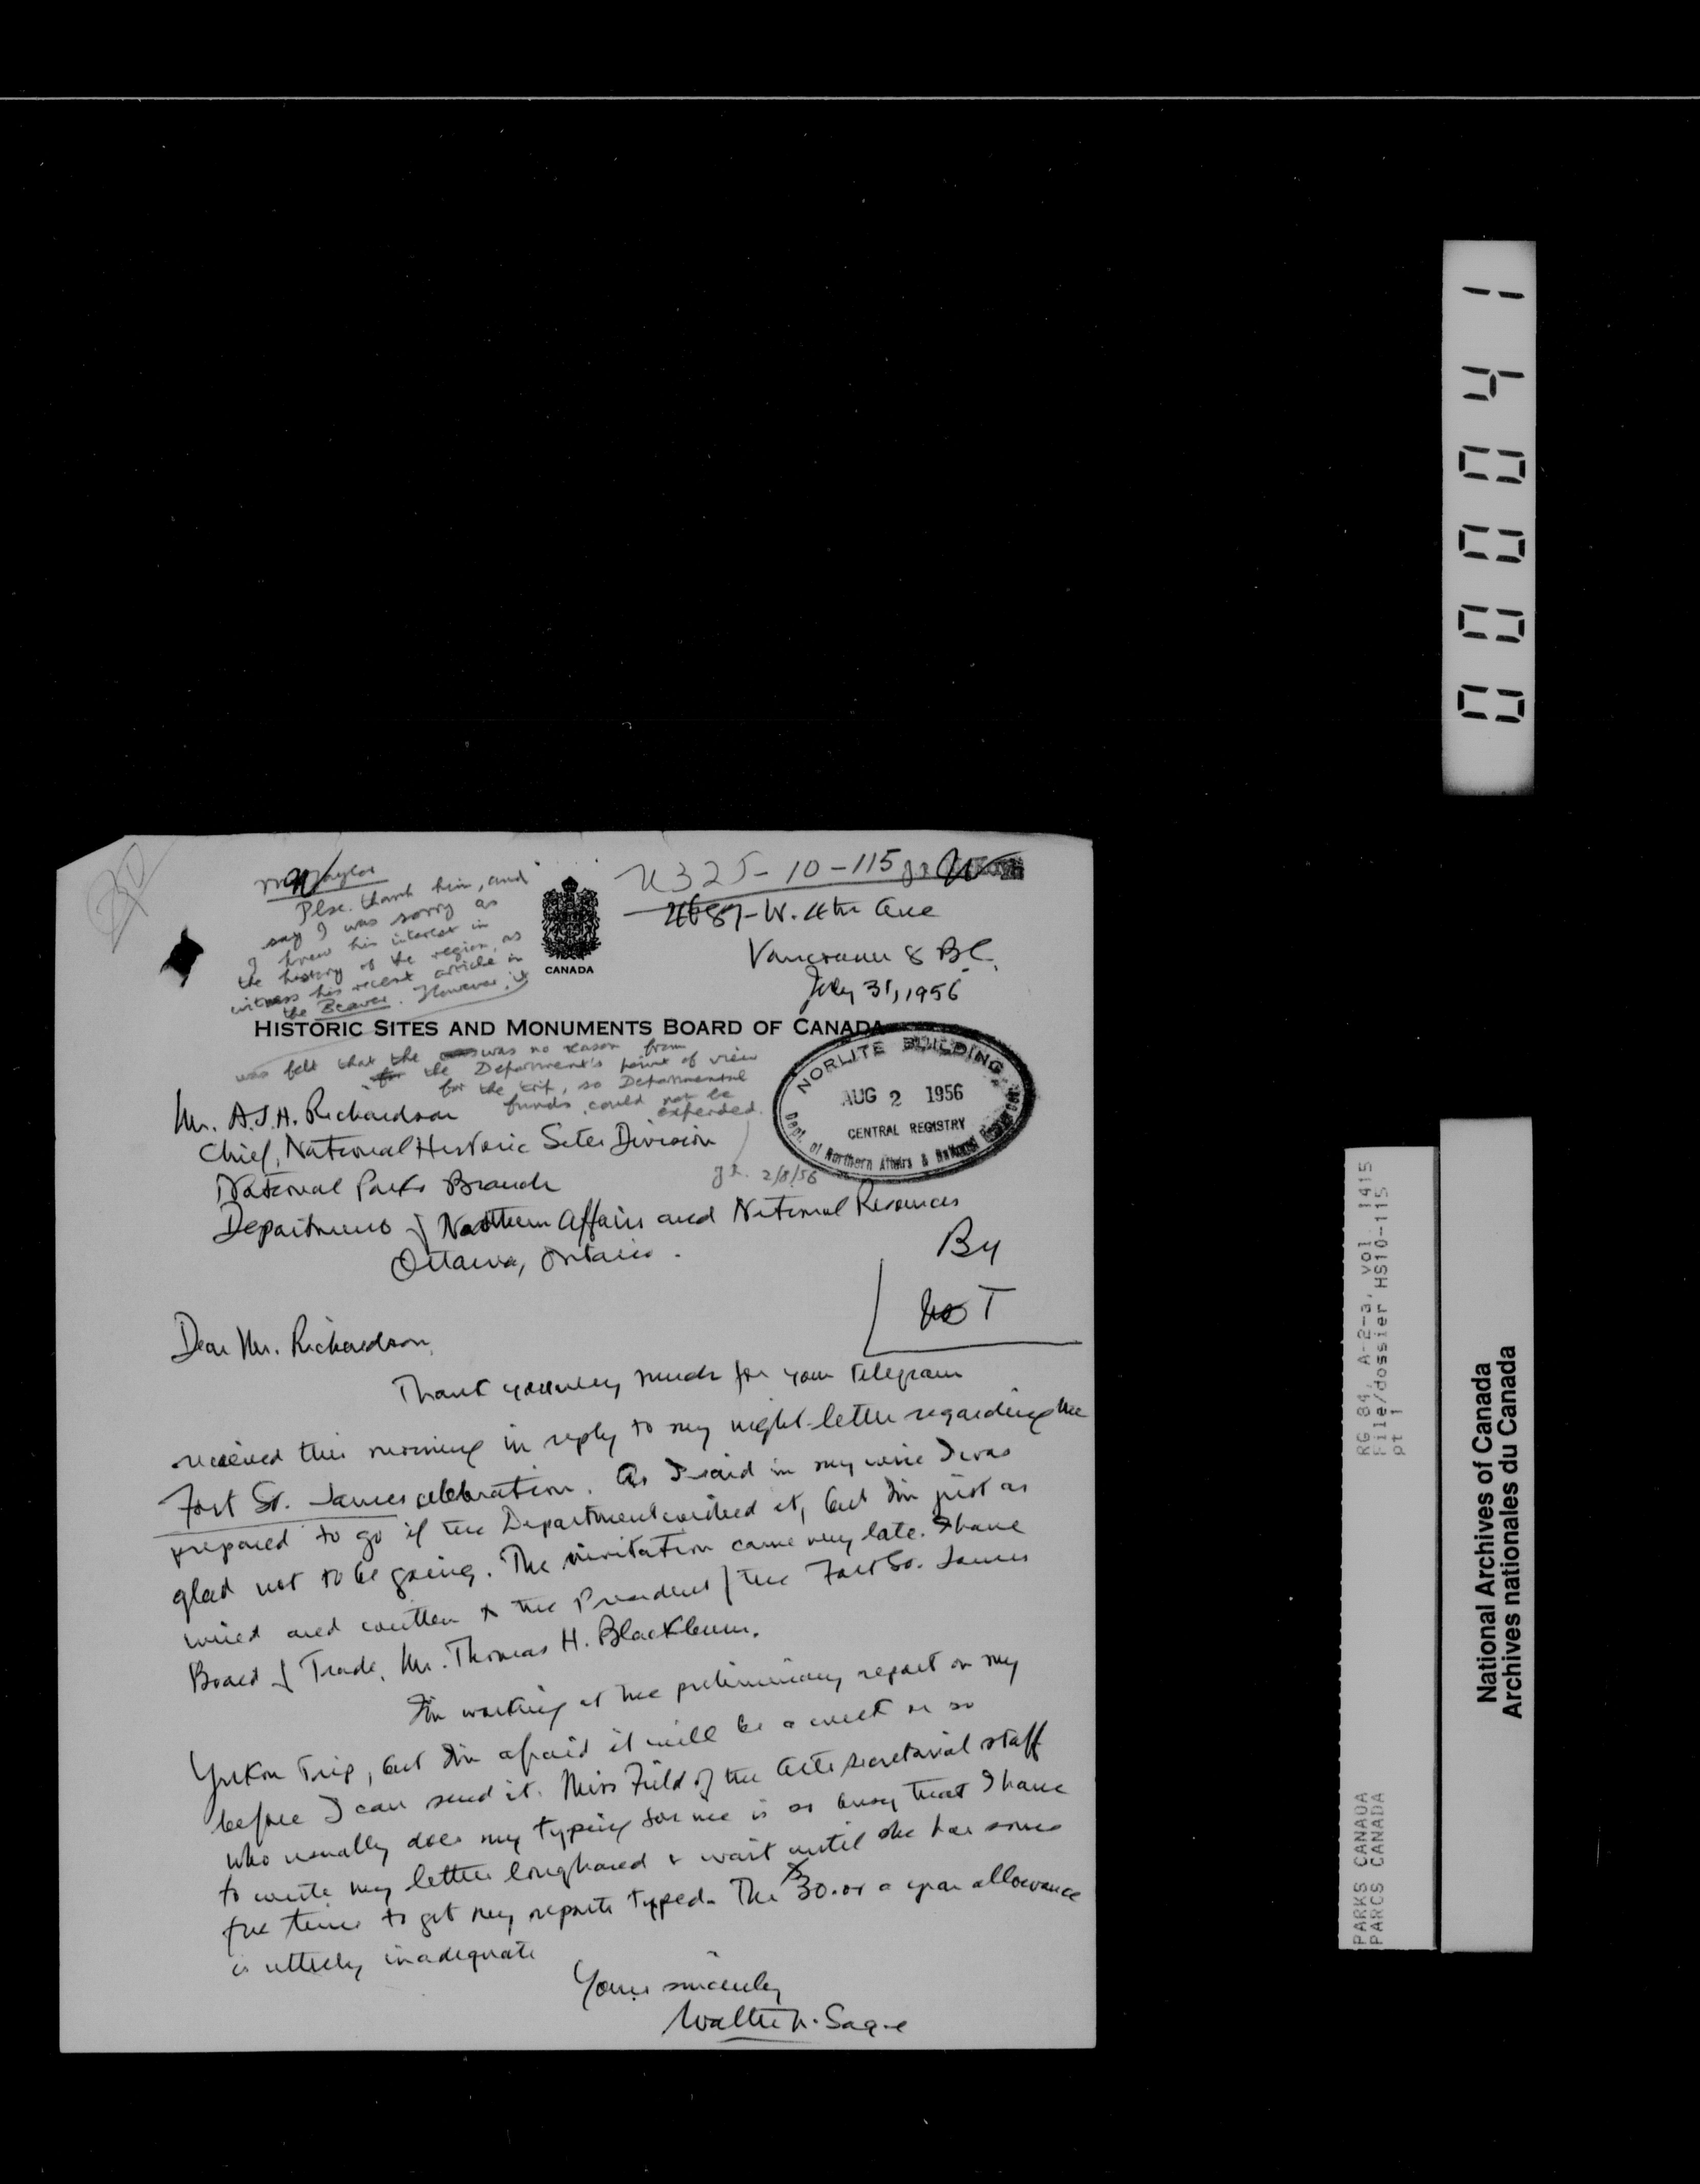 Mr Taylor
Plse. thank him, and
say I was sorry as
I knew his interest in
the history of the region, as
witness his recent article in
the Beaver. However, it
was felt that the was no reason from
the Department's point of view
for the trip, so Departmental
funds could not be
expended.
2/8/56
CANADA
U325-10-115
4687-W. 4th Ave
Vancouver 8 B.C.
July 31, 1956
HISTORIC SITES AND MONUMENTS BOARD OF CANADA
NORLITE BUILDING
AUG 2 1956
CENTRAL REGISTRY
Dept. of Northern Affairs & National Resources
Mr. A.J.H. Richardson
Chief, National Historic Sites Division
National Parks Branch
Department of Northern Affairs and National Resources
Ottawa, Ontario.
By
T
Dear Mr. Richardson,
Thank you very much for your telegram
received this morning in reply to my night-letter regarding the
Fort St. James celebration. As I said in my wire I was
prepared to go if the Department wished it, but I'm just as
glad not to be going. The invitation came very late. I have
wired and written to the President of the Fort St. James
Board of Trade, Mr. Thomas H. Blackburn.
I'm working at the preliminary report on my
Yukon Trip, but I'm afraid it will be a week or so
before I can send it. Miss Field of the Arts secretarial staff
who usually does my typing for me is so busy that I have
to write my letters longhand & wait until she has some
free time to get my reports typed. The $30.00 a year allowance
is utterly inadequate
Yours sincerely
Walter N. Sage
000041
RG 84, A-2-a, vol. 1415
File/dossier HS10-115
pt 1
PARKS CANADA
PARCS CANADA
National Archives of Canada
Archives nationales du Canada